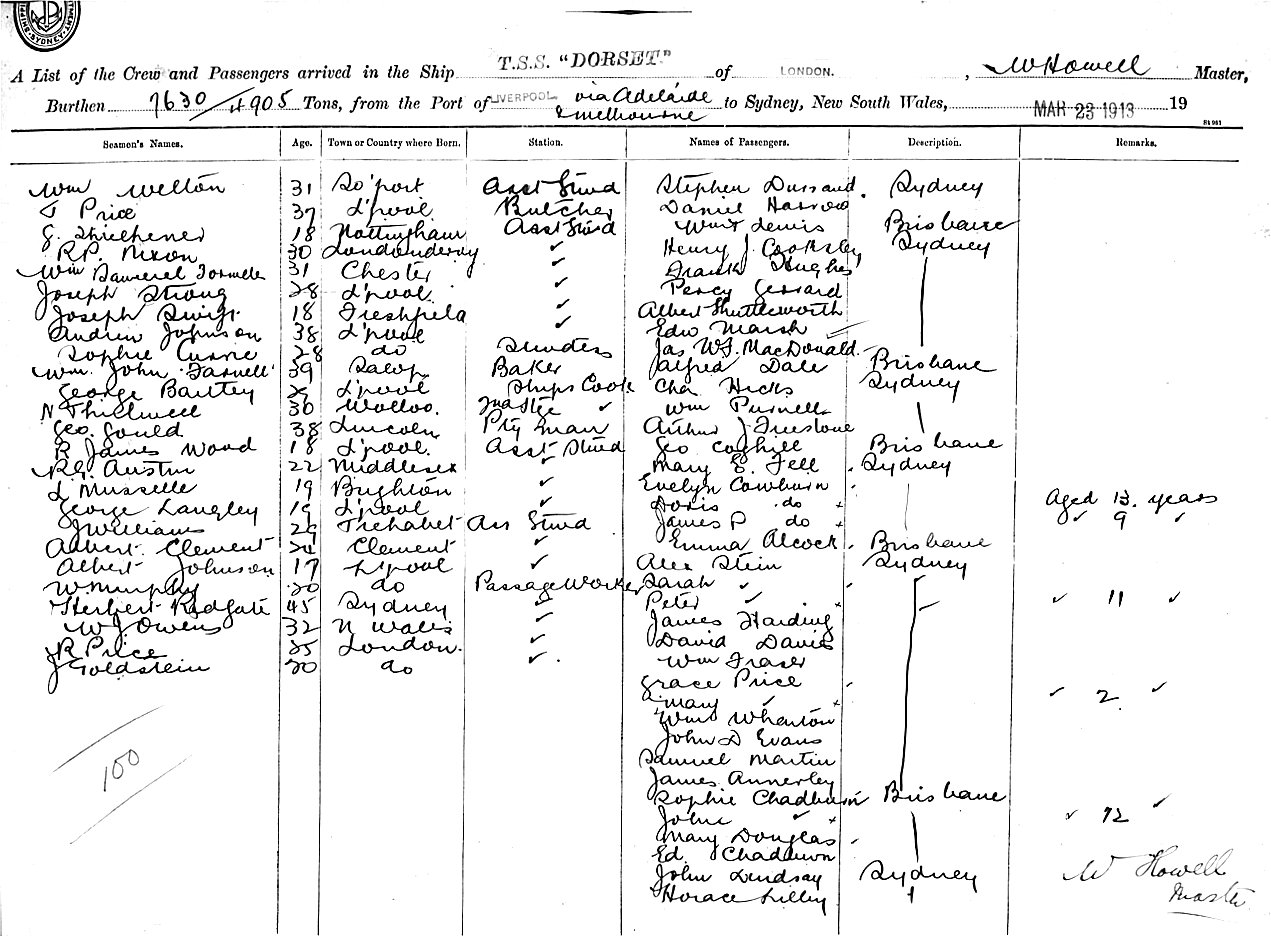 SYDNEY
A List of the Crew and Passengers arrived in the Ship T.S.S. "DORSET" of LONDON. , W Howell Master,
Burthen 7630/4905 Tons, from the Port of LIVERPOOL via Adelaide & Melbourne to Sydney, New South Wales, MAR 23 1913 19
Seamen's Names. Age. Town or Country where Born. Station. Names of Passengers. Description. Remarks.
Wm Welton 31 So'port Asst Stwd Stephen Sydney
T Price 37 L'pool Butcher Daniel Harrow
G. 18 Nottingham Asst Stwd Wm Lewis Brisbane
R.P. Nixon 30 Londonderry ✓ Henry J. Cooksley Sydney
Wm 31 Chester ✓ Frank Hughes
Joseph Strong 28 L'pool ✓ Percy Gerrard
Joseph Swift 18 Freshfield ✓ Albert Shuttleworth
Andrew Johnson 38 L'pool ✓ Edw Marsh
Sophie Currie 28 do Jas W.F. MacDonald
Wm. John 39 Salop Baker Alfred Dale Brisbane
George L'pool Ships Cook Cha Hicks Sydney
N Thirlwell 30 ✓ Wm Pursnell
Geo. Gould 38 Lincoln Pty man Arthur J Freestone
R James Wood 18 L'pool. Asst Stwd Geo Coghill Brisbane
R.G. Austin 22 Middlesex ✓ Mary E. Fell Sydney
L Musselle 19 Brighton ✓ Evelyn Cowburn
George Langley 19 L'pool ✓ Doris do Aged 13 years
J Williams 29 Ass Stwd James P do ✓ 9 ✓
Albert Clement 24 Clement ✓ Emma Alcock Brisbane
Albert Johnson 17 L'pool ✓ Alex Stein Sydney
W Murphy 20 do Passage Worker Sarah ✓
Herbert Redgate 45 Sydney ✓ Peter ✓ ✓ 11 ✓
W J Owens 32 N Wales ✓ James Harding
R Price 25 London ✓ David Davies
J Goldstein 20 do ✓ Wm Fraser
Grace Price
Mary ✓ ✓ 2 ✓
Wm Wharton
John D Evans
Samuel Martin
James Annerley
Sophie Chadburn Brisbane
John ✓ ✓ 12 ✓
Mary Douglas
Ed.
John Lindsay Sydney
Horace Lilley
100
W Howell
Master